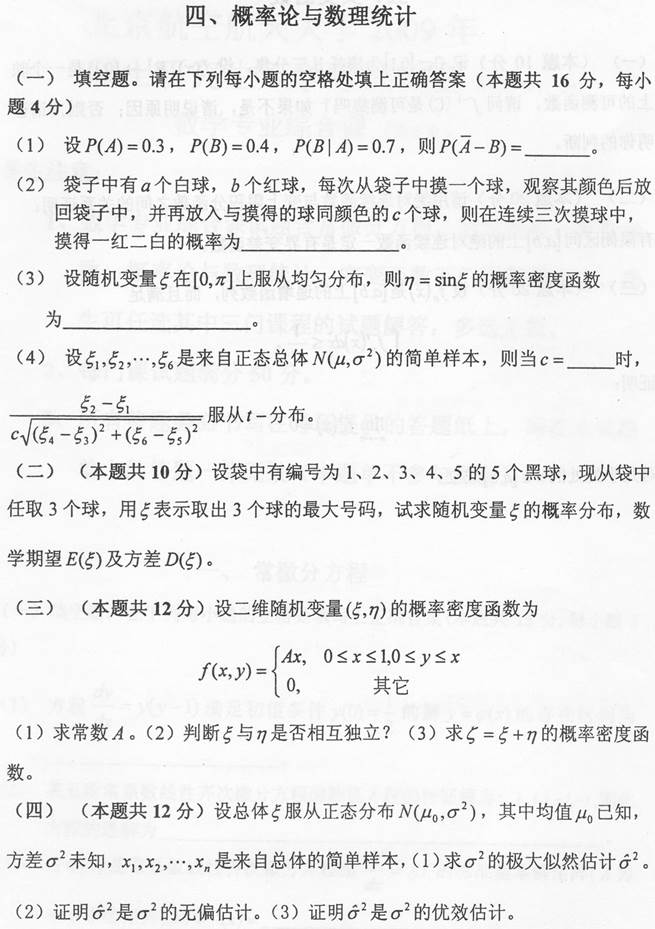 四、概率论与数理统计
(一) 填空题。请在下列每小题的空格处填上正确答案(本题共 16 分,每小
题 4 分)
(1) 设 P(A)=0.3, P(B)=0.4, P(B|A)=0.7, 则 P(A̅−B)=______。
(2) 袋子中有 a 个白球, b 个红球, 每次从袋子中摸一个球, 观察其颜色后放
回袋子中, 并再放入与摸得的球同颜色的 c 个球, 则在连续三次摸球中,
摸得一红二白的概率为______________。
(3) 设随机变量 ξ 在 [0,π] 上服从均匀分布, 则 η = sinξ 的概率密度函数
为________________。
(4) 设 ξ₁,ξ₂,⋯,ξ₆ 是来自正态总体 N(μ,σ²) 的简单样本, 则当 c = ____时,
(ξ₂−ξ₁)/(c√((ξ₄−ξ₃)²+(ξ₆−ξ₅)²)) 服从 t − 分布。
(二) (本题共 10 分) 设袋中有编号为 1、2、3、4、5 的 5 个黑球, 现从袋中
任取 3 个球, 用 ξ 表示取出 3 个球的最大号码, 试求随机变量 ξ 的概率分布, 数
学期望 E(ξ) 及方差 D(ξ)。
(三) (本题共 12 分) 设二维随机变量 (ξ,η) 的概率密度函数为
f(x,y) = { Ax, 0≤x≤1,0≤y≤x
0, 其它
(1) 求常数 A。(2) 判断 ξ 与 η 是否相互独立? (3) 求 ζ = ξ+η 的概率密度函
数。
(四) (本题共 12 分) 设总体 ξ 服从正态分布 N(μ₀,σ²), 其中均值 μ₀ 已知,
方差 σ² 未知, x₁,x₂,⋯,xₙ 是来自总体的简单样本, (1) 求 σ² 的极大似然估计 σ̂²。
(2) 证明 σ̂² 是 σ² 的无偏估计。(3) 证明 σ̂² 是 σ² 的优效估计。